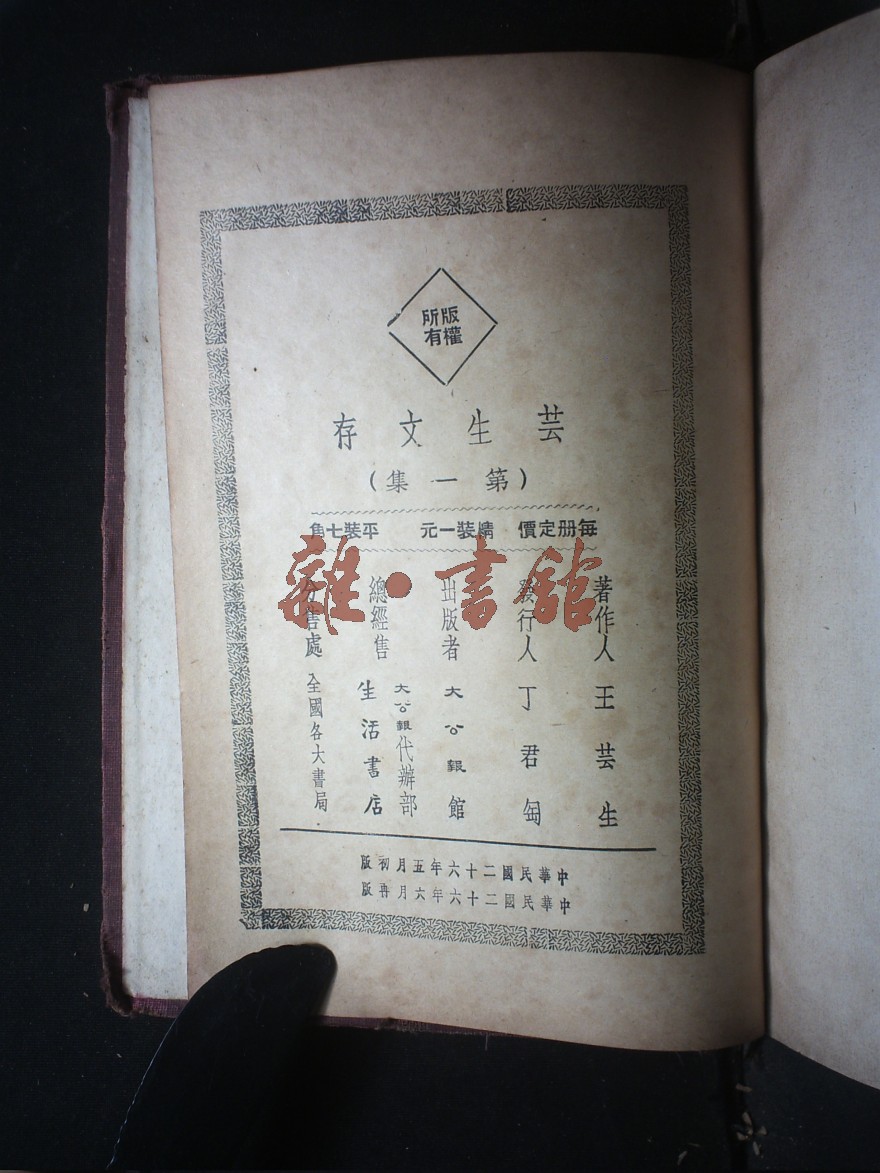 版權
所有
芸生文存
（第一集）
每册定價 精裝一元 平裝七角
著作人 王芸生
發行人 丁君匋
出版者 大公報館
總經售 大公報代辦部
生活書店
分售處 全國各大書局
中華民國二十六年五月初版
中華民國二十六年六月再版
雜•書館